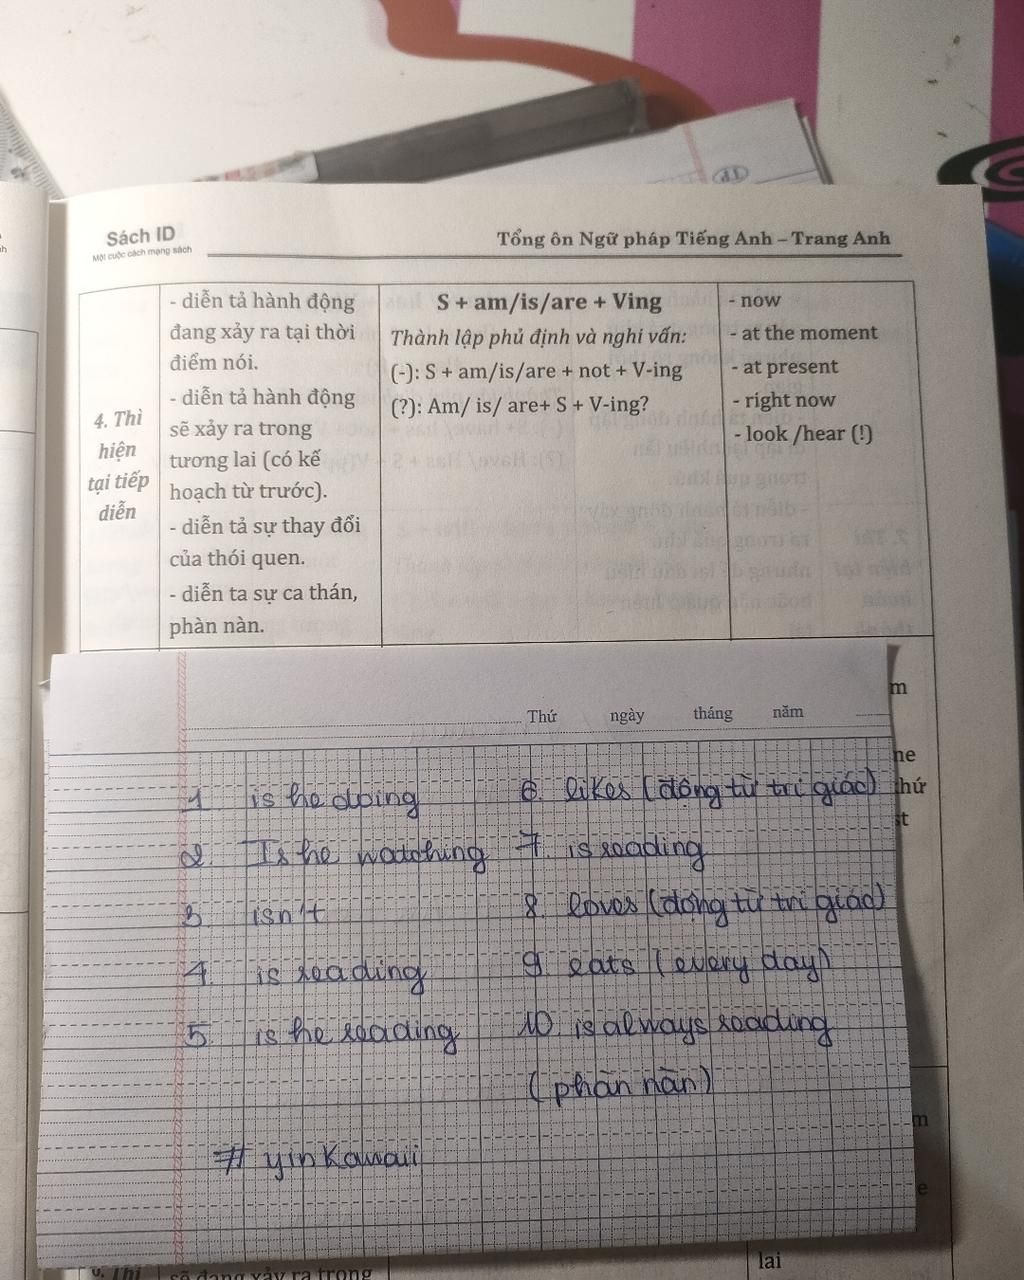 Sách ID
Một cuộc cách mạng sách
Tổng ôn Ngữ pháp Tiếng Anh – Trang Anh
4. Thì
hiện
tại tiếp
diễn
- diễn tả hành động
đang xảy ra tại thời
điểm nói.
- diễn tả hành động
sẽ xảy ra trong
tương lai (có kế
hoạch từ trước).
- diễn tả sự thay đổi
của thói quen.
- diễn ta sự ca thán,
phàn nàn.
S + am/is/are + Ving
Thành lập phủ định và nghi vấn:
(-): S + am/is/are + not + V-ing
(?): Am/ is/ are+ S + V-ing?
- now
- at the moment
- at present
- right now
- look /hear (!)
Thứ ngày tháng năm
1 is he doing
2. Is he watching
3 isn't
4. is reading
5. is he reading
6. likes (động từ tri giác)
7. is reading
8. loves (động từ tri giác)
9. eats (every day)
10. is always reading
(phàn nàn)
# yinkawaii
m
he
thứ
st
m
e
lai
6. Thì
sẽ đang xảy ra trong